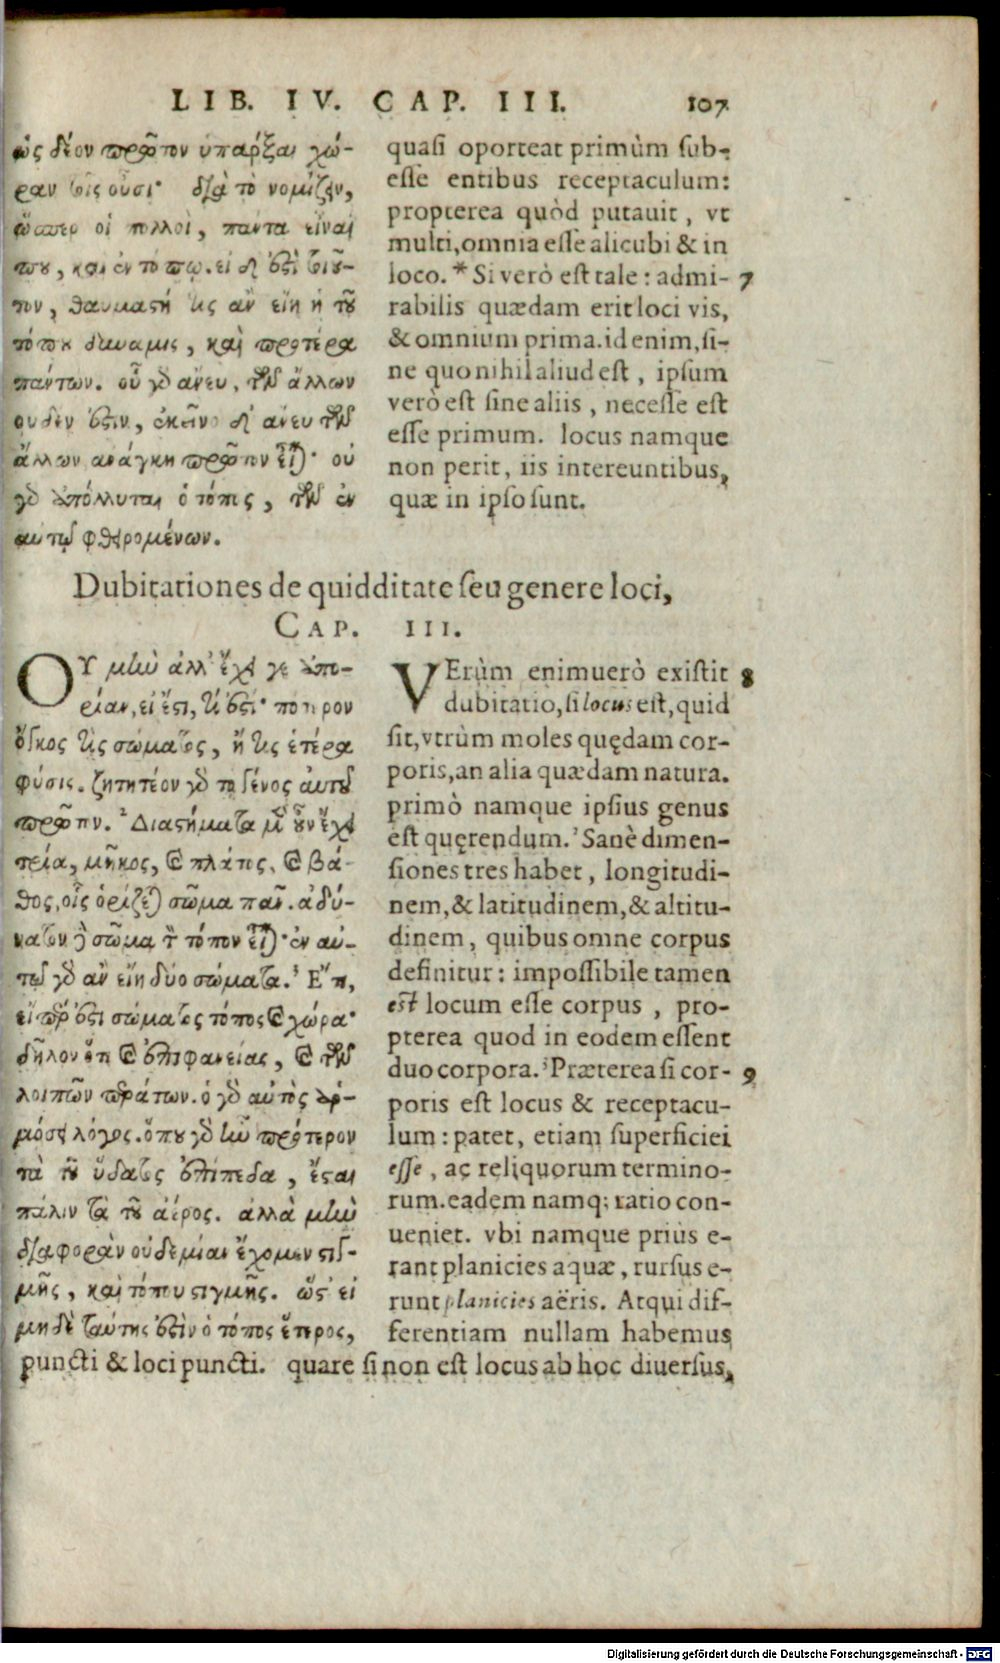 LIB. IV. CAP. III. 107
ὡς δέον πρῶτον ὑπάρξαι χώ-
ραν τοῖς οὖσι· διὰ τὸ νομίζειν,
ὥσπερ οἱ πολλοὶ, πάντα εἶναί
που, καὶ ἐν τόπῳ. εἰ δ' ἐστὶ τοιοῦ-
τον, θαυμαστή τις ἂν εἴη ἡ τοῦ
τόπου δύναμις, καὶ προτέρα
πάντων. οὗ γὰρ ἄνευ, τῶν ἄλλων
οὐδὲν ἔστιν, ἐκεῖνο δ' ἄνευ τῶν
ἄλλων ἀνάγκη πρῶτον εἶναι· οὐ
γὰρ ἀπόλλυται ὁ τόπος, τῶν ἐν
αὐτῷ φθειρομένων.
quasi oporteat primùm sub-
esse entibus receptaculum:
propterea quòd putauit, vt
multi, omnia esse alicubi & in
loco. * Si verò est tale: admi- 7
rabilis quædam erit loci vis,
& omnium prima. id enim, si-
ne quo nihil aliud est, ipsum
verò est sine aliis, necesse est
esse primum. locus namque
non perit, iis intereuntibus,
quæ in ipso sunt.
Dubitationes de quidditate seu genere loci,
CAP. III.
ΟΥ μὴν ἀλλ' ἔχει γε ἀπο-
ρίαν, εἰ ἔστι, τί ἐστι· πότερον
ὄγκος τις σώματος, ἤ τις ἑτέρα
φύσις. ζητητέον γὰρ τὸ γένος αὐτοῦ
πρῶτον. ² Διαστήματα μὲν οὖν ἔχει
τρία, μῆκος, καὶ πλάτος, καὶ βά-
θος, οἷς ὁρίζεται σῶμα πᾶν. ἀδύ-
νατον δὲ σῶμα τὸν τόπον εἶναι· ἐν αὐ-
τῷ γὰρ ἂν εἴη δύο σώματα. ³ Ἔτι,
εἴπερ ἐστὶ σώματος τόπος καὶ χώρα·
δῆλον ὅτι καὶ ἐπιφανείας, καὶ τῶν
λοιπῶν περάτων. ὁ γὰρ αὐτὸς ἁρ-
μόσει λόγος. ὅπου γὰρ ἦν πρότερον
τὰ τοῦ ὕδατος ἐπίπεδα, ἔσται
πάλιν τὰ τοῦ ἀέρος. ἀλλὰ μὴν
διαφορὰν οὐδεμίαν ἔχομεν στιγ-
μῆς, καὶ τόπου στιγμῆς. ὥστ' εἰ
μηδὲ ταύτης ἐστὶν ὁ τόπος ἕτερος,
VErùm enimuerò existit 8
dubitatio, si locus est, quid
sit, vtrùm moles quędam cor-
poris, an alia quædam natura.
primò namque ipsius genus
est quęrendum. ² Sanè dimen-
siones tres habet, longitudi-
nem, & latitudinem, & altitu-
dinem, quibus omne corpus
definitur: impossibile tamen
est locum esse corpus, pro-
pterea quod in eodem essent
duo corpora. ³ Præterea si cor- 9
poris est locus & receptacu-
lum: patet, etiam superficiei
esse, ac reliquorum termino-
rum. eadem namq; ratio con-
ueniet. vbi namque priùs e-
rant planicies aquæ, rursus e-
runt planicies aëris. Atqui dif-
ferentiam nullam habemus
puncti & loci puncti. quare si non est locus ab hoc diuersus,
Digitalisierung gefördert durch die Deutsche Forschungsgemeinschaft - DFG